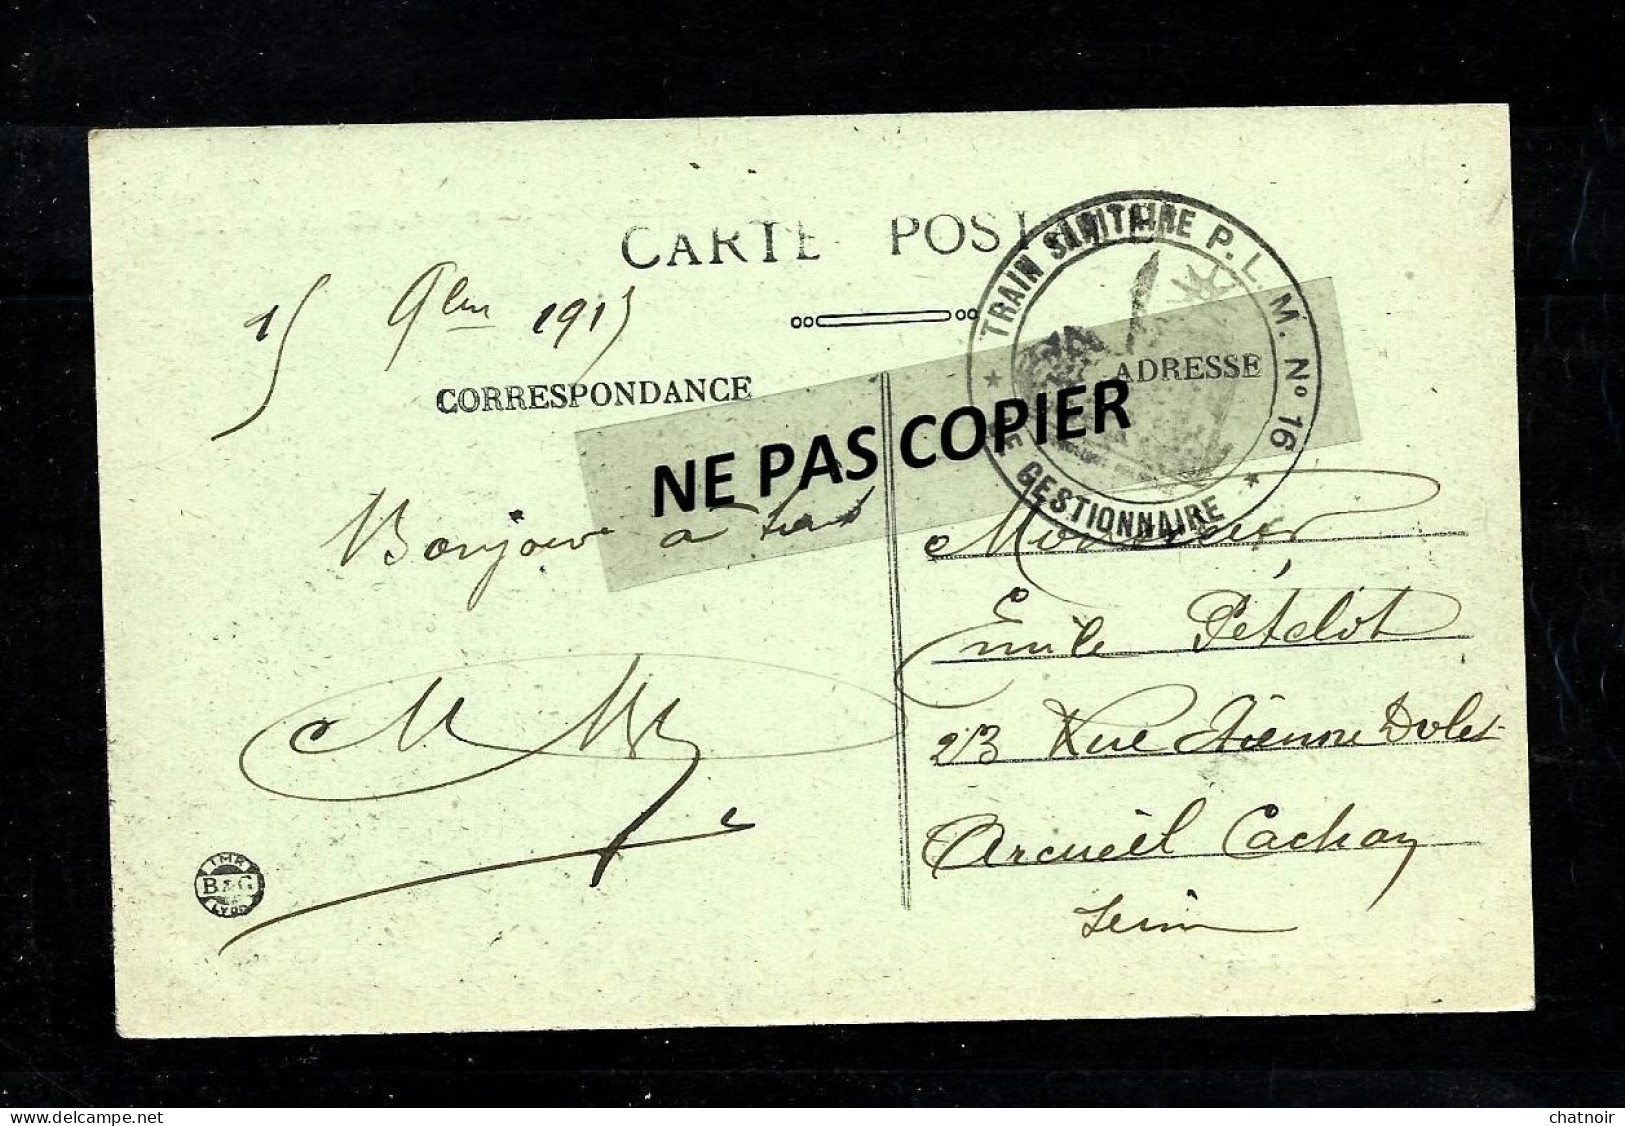 CARTE POST
TRAIN SANITAIRE P. L. M. Nº 16
LE GESTIONNAIRE
15 9bre 1915
CORRESPONDANCE
ADRESSE
NE PAS COPIER
Bonjour a tous
Monsieur
Emile Petelot
23 Rue Etienne Dolet
Arcueil Cachan
Seine
IMP.
B & G
LYON
delcampe.net
chatnoir